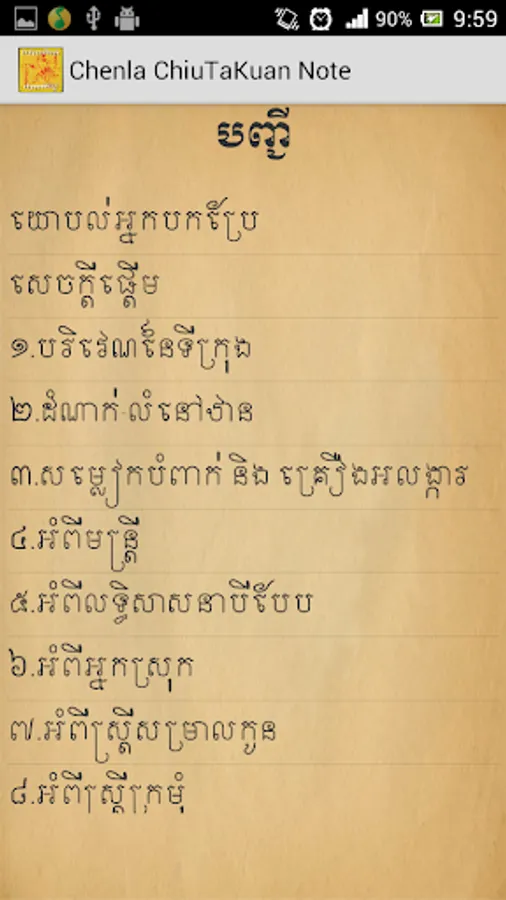 90% 9:59
Chenla ChiuTaKuan Note
បញ្ជី
យោបល់អ្នកបកប្រែ
សេចក្ដីផ្ដើម
១.បរិវេណនៃទីក្រុង
២.ដំណាក់-លំនៅឋាន
៣.សម្លៀកបំពាក់ និង គ្រឿងអលង្ការ
៤.អំពីមន្ត្រី
៥.អំពីលទ្ធិសាសនាបីបែប
៦.អំពីអ្នកស្រុក
៧.អំពីស្ត្រីសម្រាលកូន
៨.អំពីស្ត្រីក្រមុំ